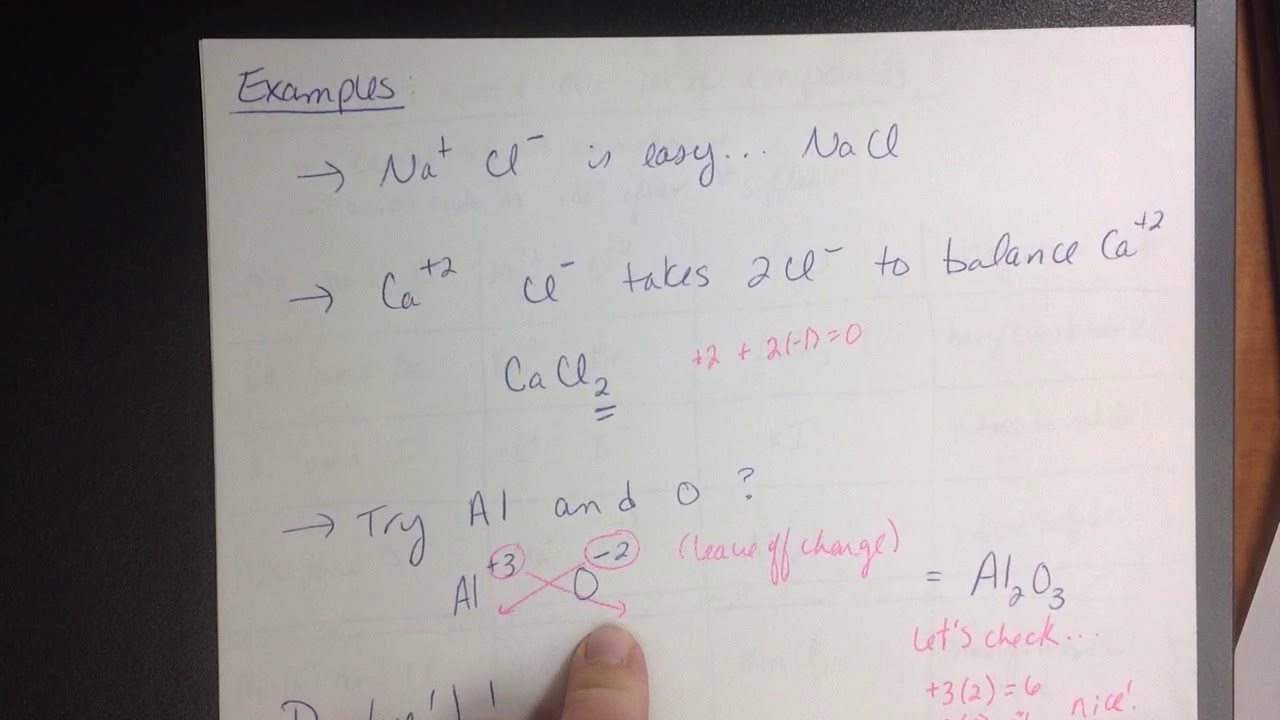 Examples:
→ Na⁺ Cl⁻ is easy... NaCl
→ Ca⁺² Cl⁻ takes 2Cl⁻ to balance Ca⁺²
CaCl₂ +2 + 2(-1) = 0
→ Try Al and O ?
Al⁺³ O⁻² (leave off change) = Al₂O₃
Let's check...
+3(2) = 6
nice!